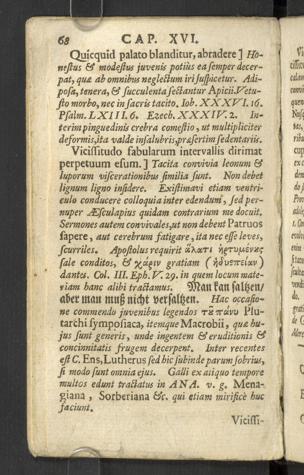 68 CAP. XVI.
Quicquid palato blanditur, abradere] Ho-
nestus & modestus juvenis potius ea semper decer-
pat, quæ ab omnibus neglectum iri suspicetur. Adi-
posa, tenera, & succulenta sectantur Apicii. Vetu-
sto morbo, nec in sacris tacito. Iob. XXXVI. 16.
Psalm. LXIII. 6. Ezech. XXXIV. 2. In-
terim pinguedinis crebra comestio, ut multipliciter
deformis, ita valde insalubris, præsertim sedentariis.
Vicissitudo fabularum intervallis dirimat
perpetuum esum.] Tacita convivia leonum &
luporum viscerationibus similia sunt. Non debet
lignum ligno insidere. Existimavi etiam ventri-
culo conducere colloquia inter edendum, sed per-
nuper Æsculapius quidam contrarium me docuit.
Sermones autem convivales, ut non debent Patruos
sapere, aut cerebrum fatigare, ita nec esse leves,
scurriles. Apostolus requirit ἅλατι ἠρτυμένας
sale conditos, & χάριν gratiam (ἡδυεπείαν)
dantes. Col. III. Eph. V. 29. in quem locum mate-
riam hanc alibi tractamus. Man kan saltzen/
aber man muß nicht versaltzen. Hac occasio-
ne commendo juvenibus legendos τὰ πάνυ Plu-
tarchi symposiaca, itemque Macrobii, quæ hu-
jus sunt generis, unde ingentem & eruditionis &
concinnitatis frugem decerpent. Inter recentes
est C. Ens, Lutherus sed hic subinde parum sobrius,
si modo sunt omnia ejus. Galli ex aliquo tempore
multos edunt tractatus in ANA. v. g. Mena-
giana, Sorberiana &c. qui etiam mirificè huc
faciunt.
Vicissi-